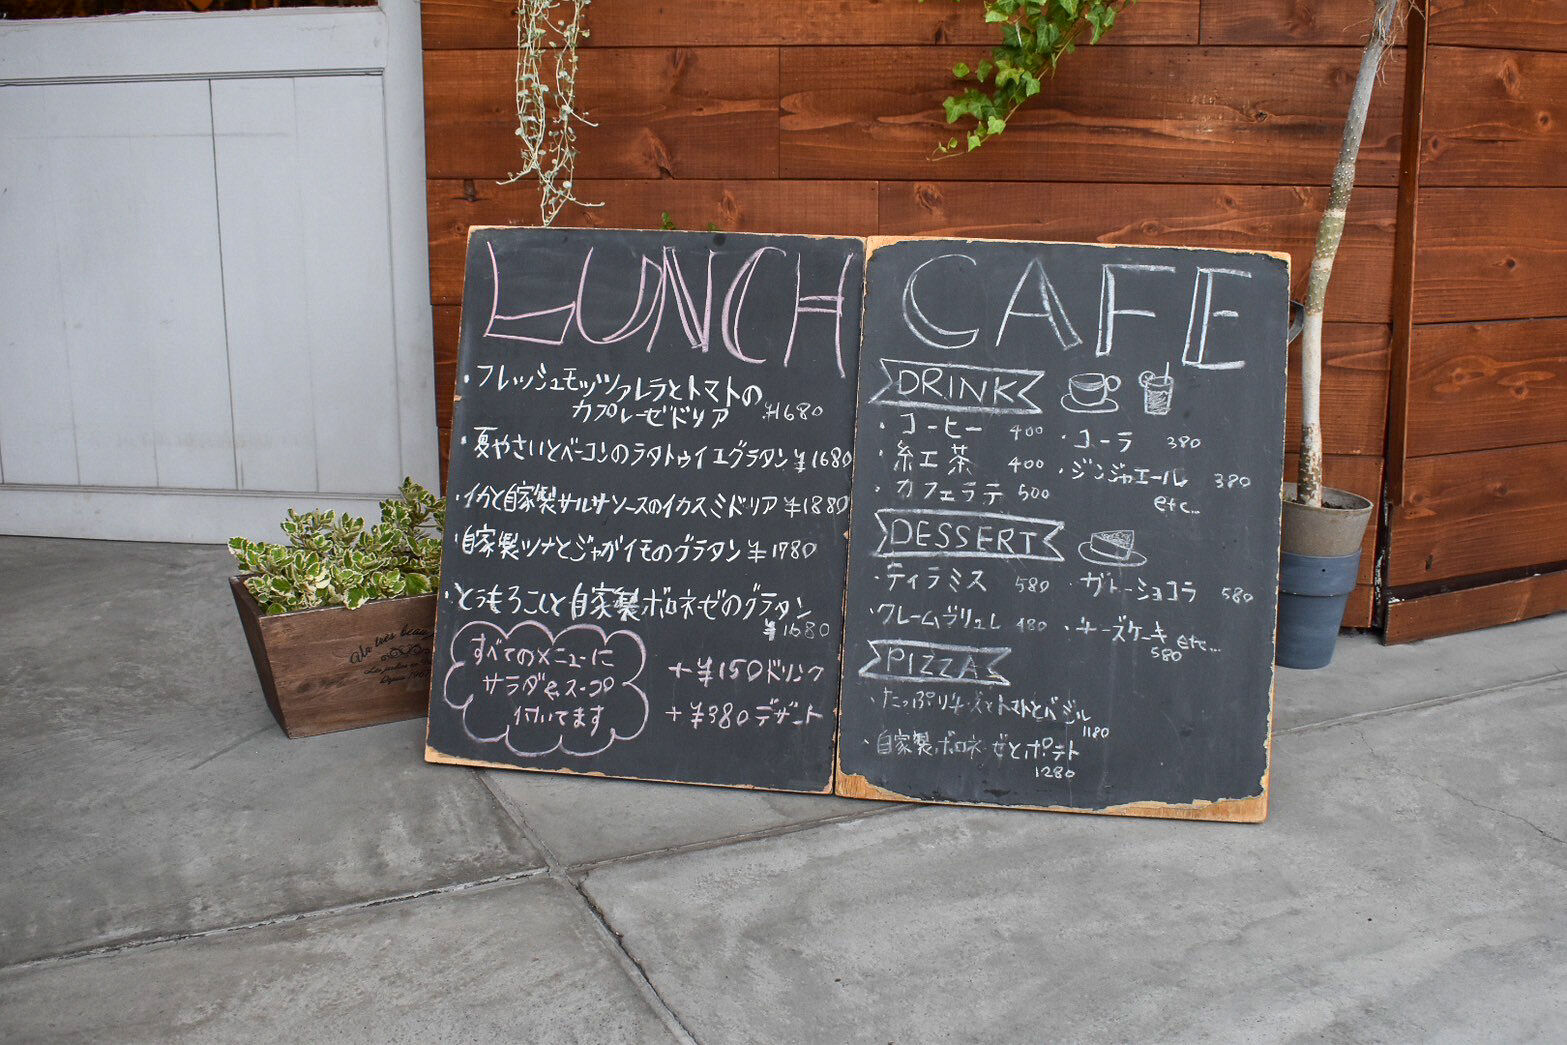 LUNCH
・フレッシュモッツァレラとトマトの
カプレーゼドリア ¥1680
・夏やさいとベーコンのラタトゥイユグラタン ¥1680
・イカと自家製サルサソースのイカスミドリア ¥1880
・自家製ツナとジャガイモのグラタン ¥1780
・とうもろこしと自家製ボロネゼのグラタン
¥1680
すべてのメニューに
サラダ&スープ
付いてます
+¥150ドリンク
+¥380デザート
CAFE
DRINK
・コーヒー 400
・紅茶 400
・カフェラテ 500
・コーラ 380
・ジンジャエール 380
etc...
DESSERT
・ティラミス 580
・クレームブリュレ 480
・ガトーショコラ 580
・チーズケーキ etc...
580
PIZZA
・たっぷりチーズとトマトとバジル
1180
・自家製ボロネーゼとポテト
1280